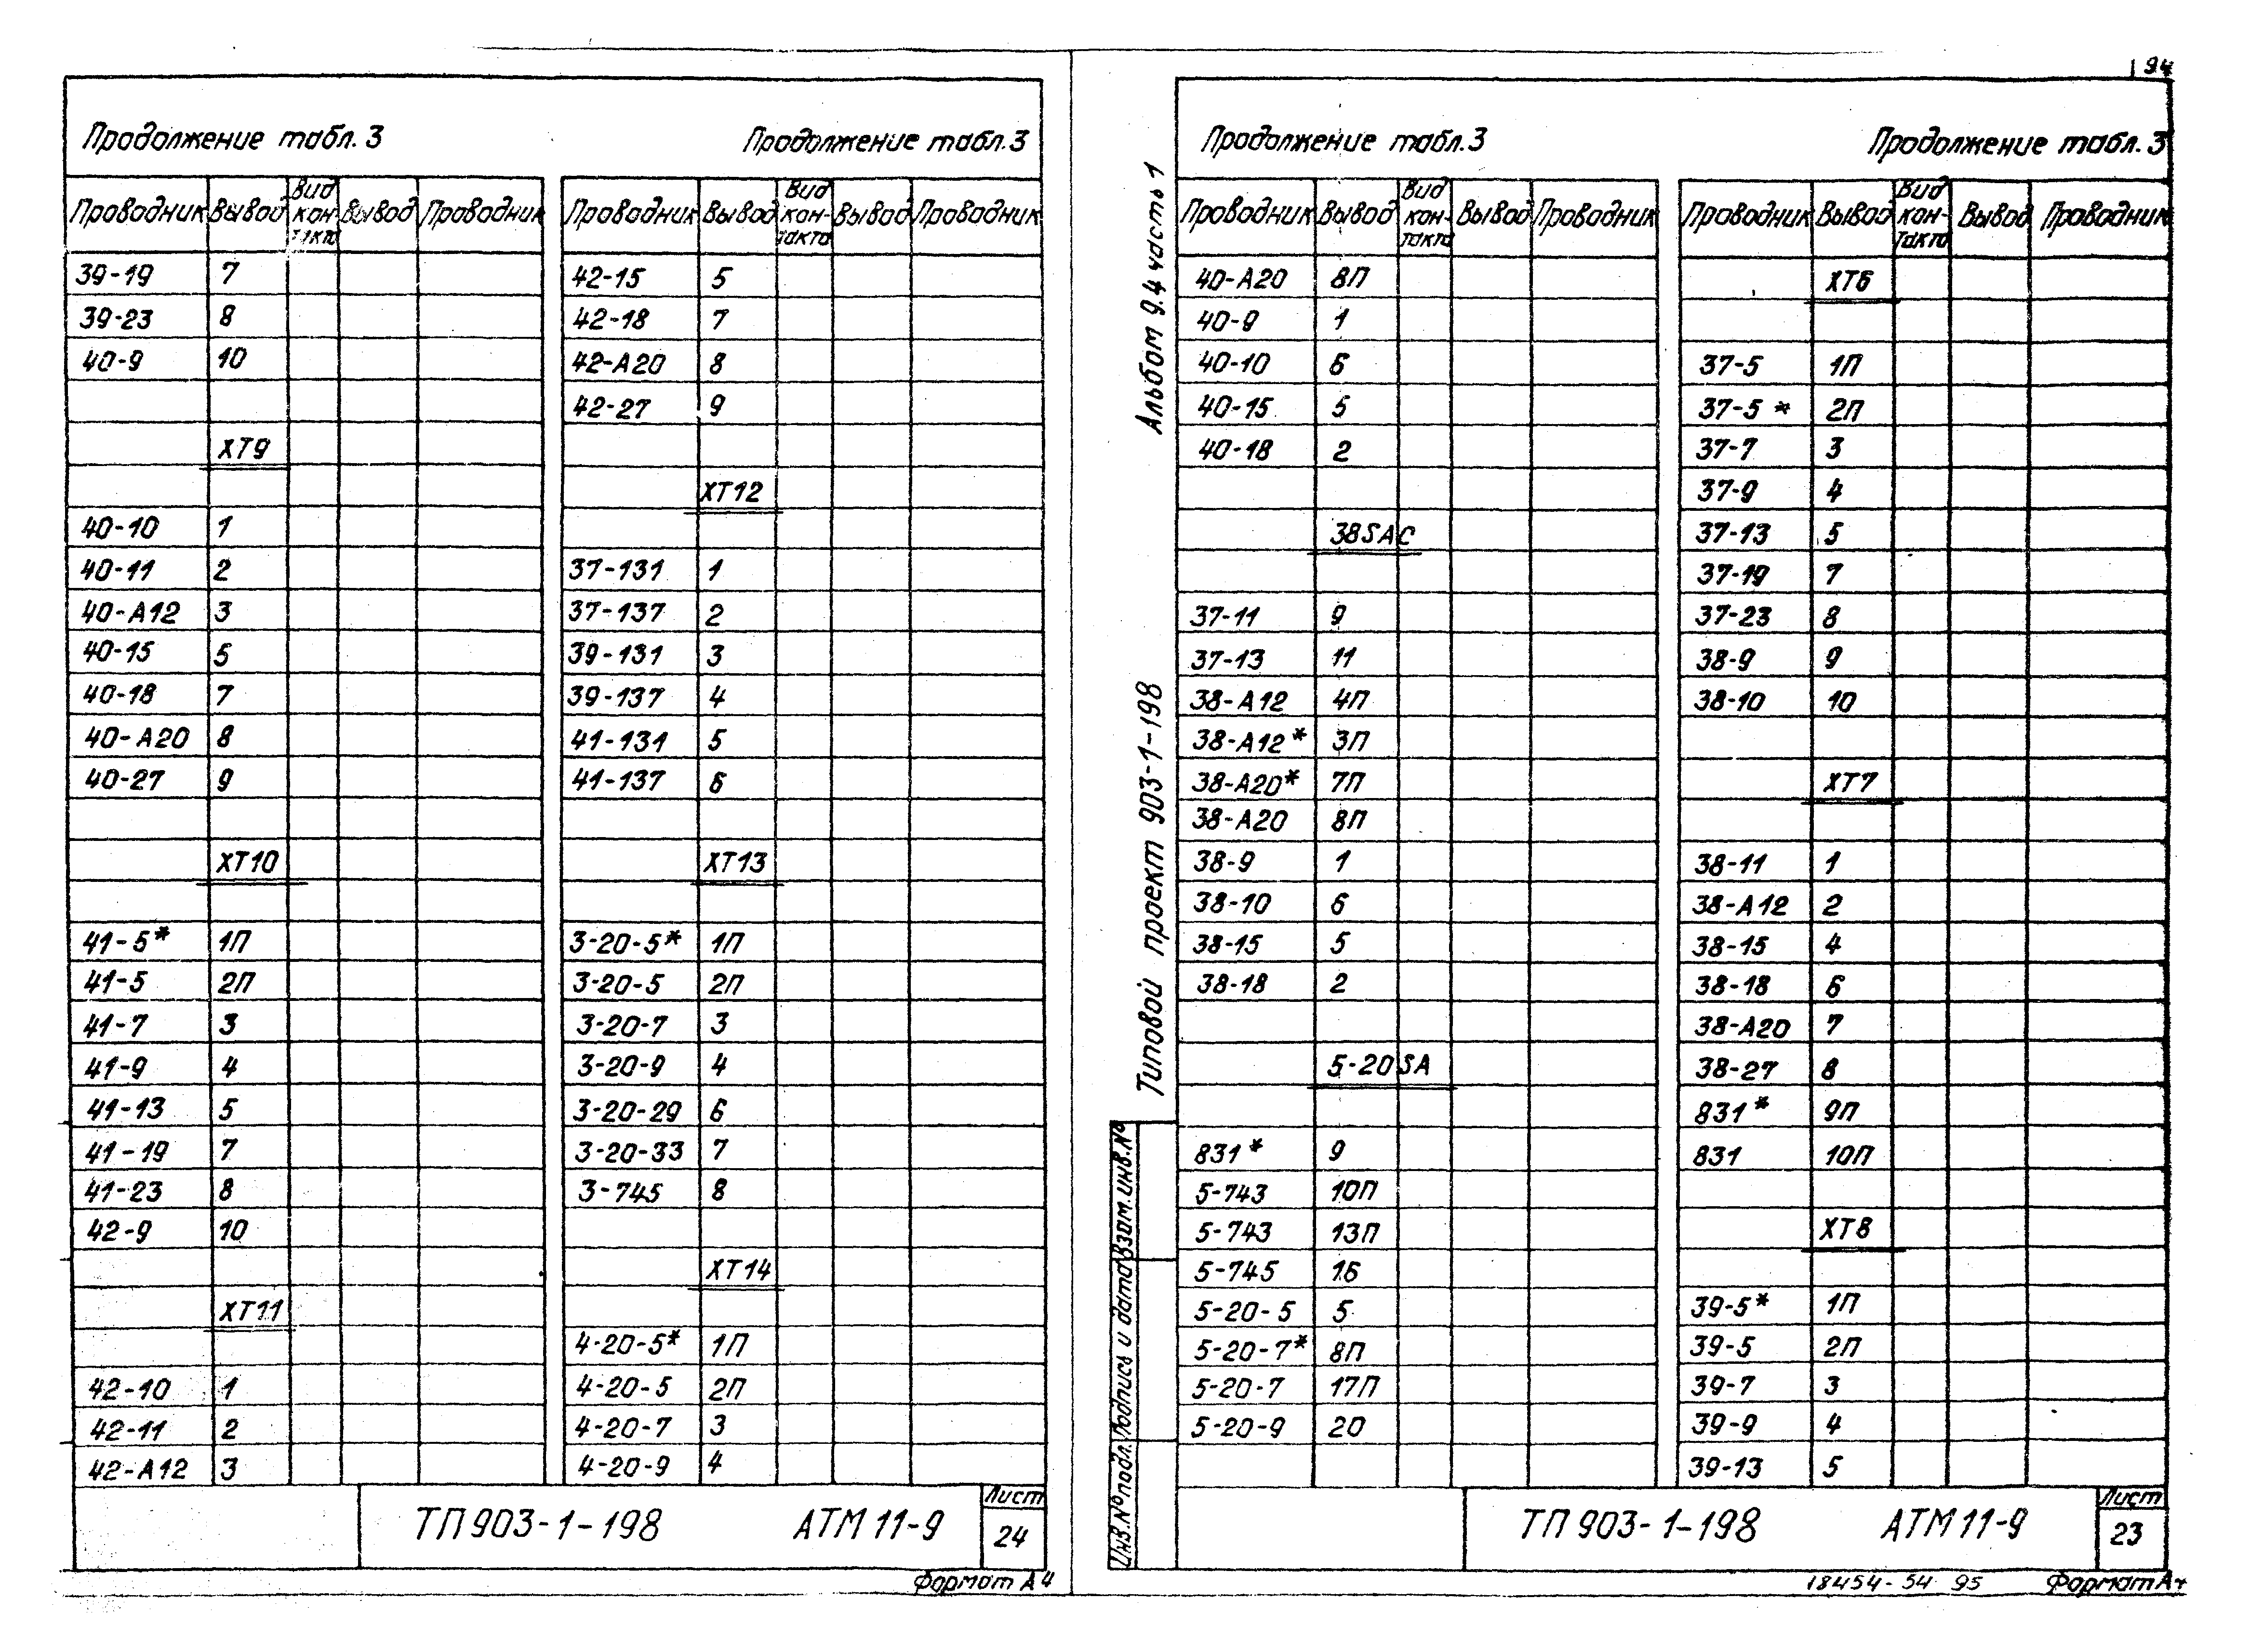 Продолжение табл. 3
Проводник Вывод Вид контакта Вывод Проводник
39-19 7
39-23 8
40-9 10
XT9
40-10 1
40-11 2
40-A12 3
40-15 5
40-18 7
40-A20 8
40-27 9
XT10
41-5* 1П
41-5 2П
41-7 3
41-9 4
41-13 5
41-19 7
41-23 8
42-9 10
XT11
42-10 1
42-11 2
42-A12 3
Продолжение табл. 3
Проводник Вывод Вид контакта Вывод Проводник
42-15 5
42-18 7
42-A20 8
42-27 9
XT12
37-131 1
37-137 2
39-131 3
39-137 4
41-131 5
41-137 6
XT13
3-20-5* 1П
3-20-5 2П
3-20-7 3
3-20-9 4
3-20-29 6
3-20-33 7
3-745 8
XT14
4-20-5* 1П
4-20-5 2П
4-20-7 3
4-20-9 4
ТП 903-1-198 АТМ 11-9
Лист
24
Формат А4
94
Альбом 9.4 часть 1
Типовой проект 903-1-198
Взам. инв. №
Подпись и дата
Инв. № подл.
Продолжение табл. 3
Проводник Вывод Вид контакта Вывод Проводник
40-A20 8П
40-9 1
40-10 6
40-15 5
40-18 2
38SAC
37-11 9
37-13 11
38-A12 4П
38-A12* 3П
38-A20* 7П
38-A20 8П
38-9 1
38-10 6
38-15 5
38-18 2
5-20SA
831* 9
5-743 10П
5-743 13П
5-745 16
5-20-5 5
5-20-7* 8П
5-20-7 17П
5-20-9 20
Продолжение табл. 3
Проводник Вывод Вид контакта Вывод Проводник
XT6
37-5 1П
37-5* 2П
37-7 3
37-9 4
37-13 5
37-19 7
37-23 8
38-9 9
38-10 10
XT7
38-11 1
38-A12 2
38-15 4
38-18 6
38-A20 7
38-27 8
831* 9П
831 10П
XT8
39-5* 1П
39-5 2П
39-7 3
39-9 4
39-13 5
ТП 903-1-198 АТМ 11-9
Лист
23
18454-54 95 Формат А4